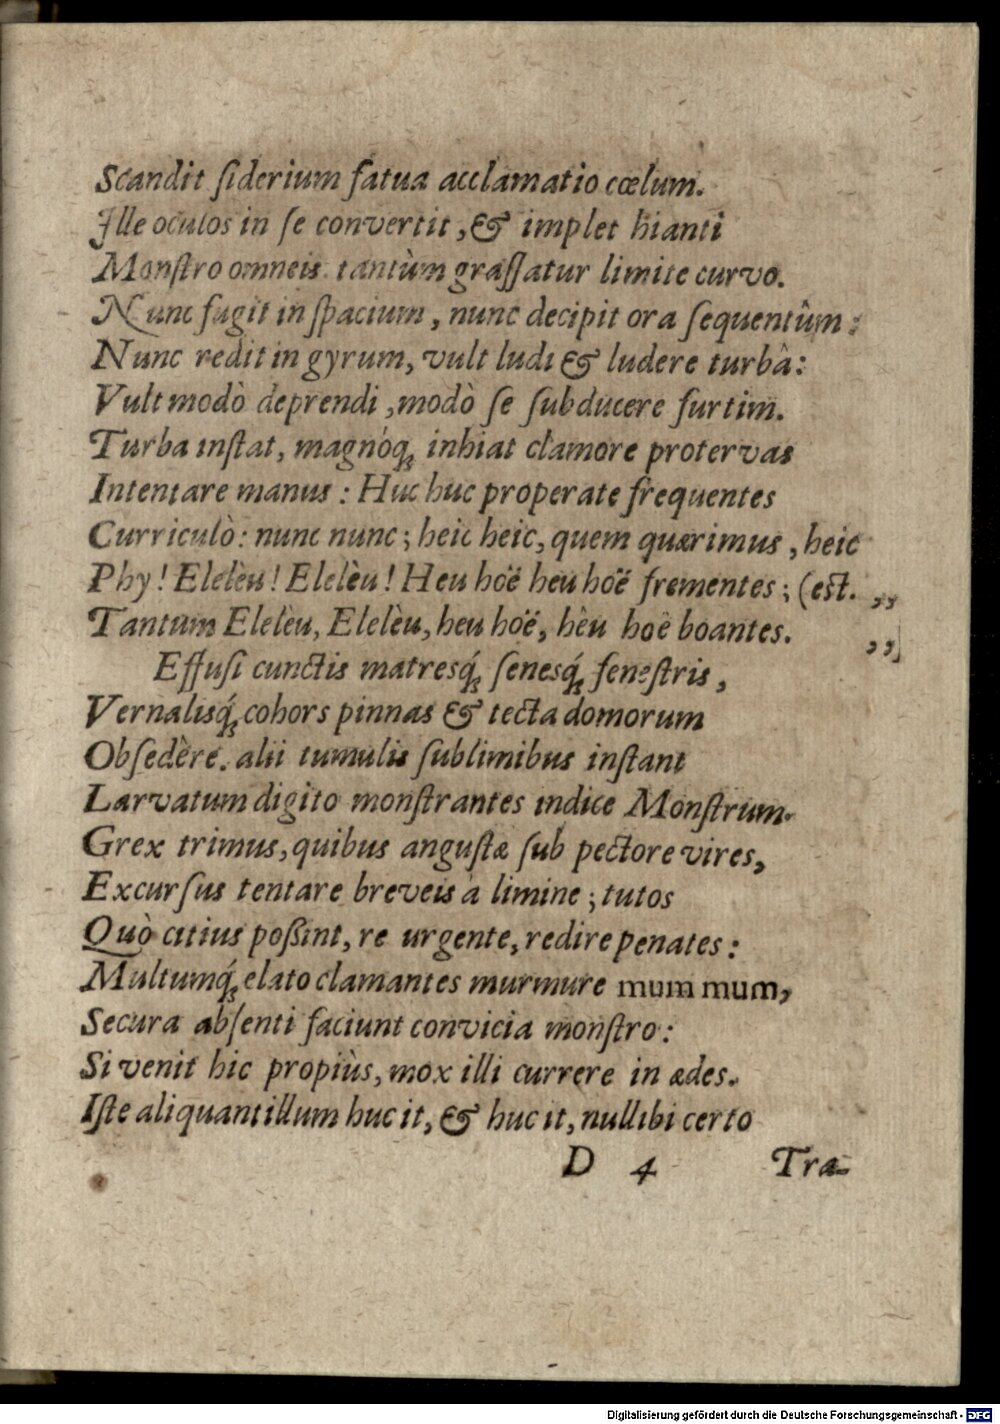 Scandit ſiderium fatua acclamatio cœlum.
Ille oculos in ſe convertit, & implet hianti
Monſtro omneis. tantùm graſſatur limite curvo.
Nunc fugit in ſpacium, nunc decipit ora ſequentûm:
Nunc redit in gyrum, vult ludi & ludere turbâ:
Vult modò deprendi, modò ſe ſubducere furtim.
Turba inſtat, magnóq; inhiat clamore protervas
Intentare manus: Huc huc properate frequentes
Curriculò: nunc nunc; heic heic, quem quærimus, heic
Phy! Elelèu! Elelèu! Heu hoë heu hoë frementes; (eſt. „
Tantum Elelèu, Elelèu, heu hoë, hèu hoë boantes. „
Effuſi cunctis matresq́; ſenesq́; feneſtris,
Vernalisq́; cohors pinnas & tecta domorum
Obſedère. alii tumulis ſublimibus inſtant
Larvatum digito monſtrantes indice Monſtrum.
Grex trimus, quibus anguſtæ ſub pectore vires,
Excurſus tentare breveis à limine; tutos
Quò citius poßint, re urgente, redire penates:
Multumq́; elato clamantes murmure mum mum,
Secura abſenti faciunt convicia monſtro:
Si venit hic propiùs, mox illi currere in ædes.
Iſte aliquantillum huc it, & huc it, nullibi certo
D 4 Tra-
Digitalisierung gefördert durch die Deutsche Forschungsgemeinschaft - DFG